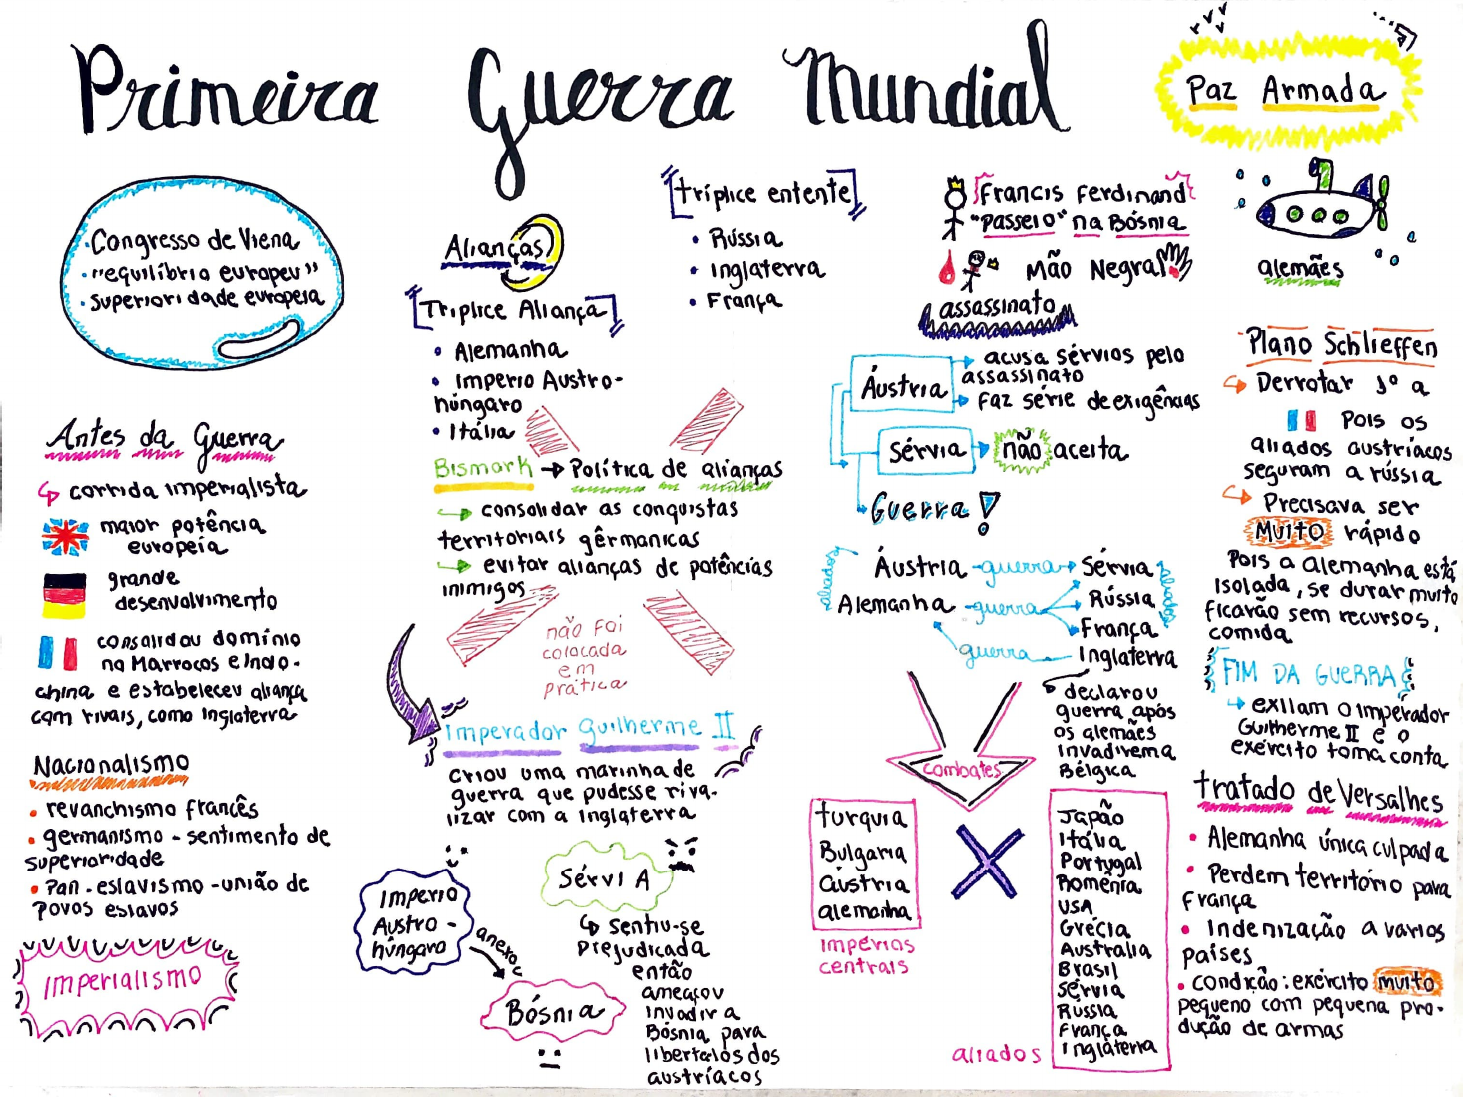 Primeira Guerra Mundial
Paz Armada
• Congresso de Viena
• "equilíbrio europeu"
• superioridade europeia
Antes da Guerra
corrida imperialista
maior potência
europeia
grande
desenvolvimento
consolidou domínio
no Marrocos e Indo-
china e estabeleceu aliança
com rivais, como Inglaterra
Nacionalismo
• revanchismo francês
• germanismo - sentimento de
superioridade
• Pan-eslavismo - união de
povos eslavos
Imperialismo
Alianças
[Tríplice Aliança]
• Alemanha
• Imperio Austro-
húngaro
• Itália
[tríplice entente]
• Rússia
• Inglaterra
• França
Bismark → Política de alianças
consolidar as conquistas
territoriais gêrmanicas
evitar alianças de potências
inimigos
não foi
colocada
em
prática
Imperador Guilherme II
criou uma marinha de
guerra que pudesse riva-
lizar com a Inglaterra
Imperio
Austro-
húngaro
anexou
Bósnia
SérviA
sentiu-se
prejudicada
então
ameaçou
invadir a
Bósnia para
libertalos dos
austríacos
Francis Ferdinand
"Passeio" na Bósnia
Mão Negra
assassinato
Áustria
→ acusa sérvios pelo
assassinato
→ faz série de exigências
Sérvia → não aceita
Guerra!
aliados
Áustria - guerra → Sérvia
Alemanha - guerra → Rússia
França
guerra - Inglaterra
aliados
declarou
guerra após
os alemães
invadirem a
Bélgica
combates
turquia
Bulgaria
áustria
alemanha
impérios
centrais
Japão
Itália
Portugal
Romênia
USA
Grécia
Australia
Brasil
Sérvia
Rússia
França
Inglaterra
aliados
alemães
Plano Schlieffen
Derrotar 1º a
Pois os
aliados austríacos
seguram a rússia
Precisava ser
MUITO rápido
Pois a Alemanha está
isolada, se durar muito
ficarão sem recursos,
comida
FIM DA GUERRA
→ exilam o imperador
Guilherme II e o
exército toma conta
tratado de Versalhes
• Alemanha única culpada
• Perdem território para
frança
• Indenização a varios
países
• condição: exército muito
pequeno com pequena pro-
dução de armas